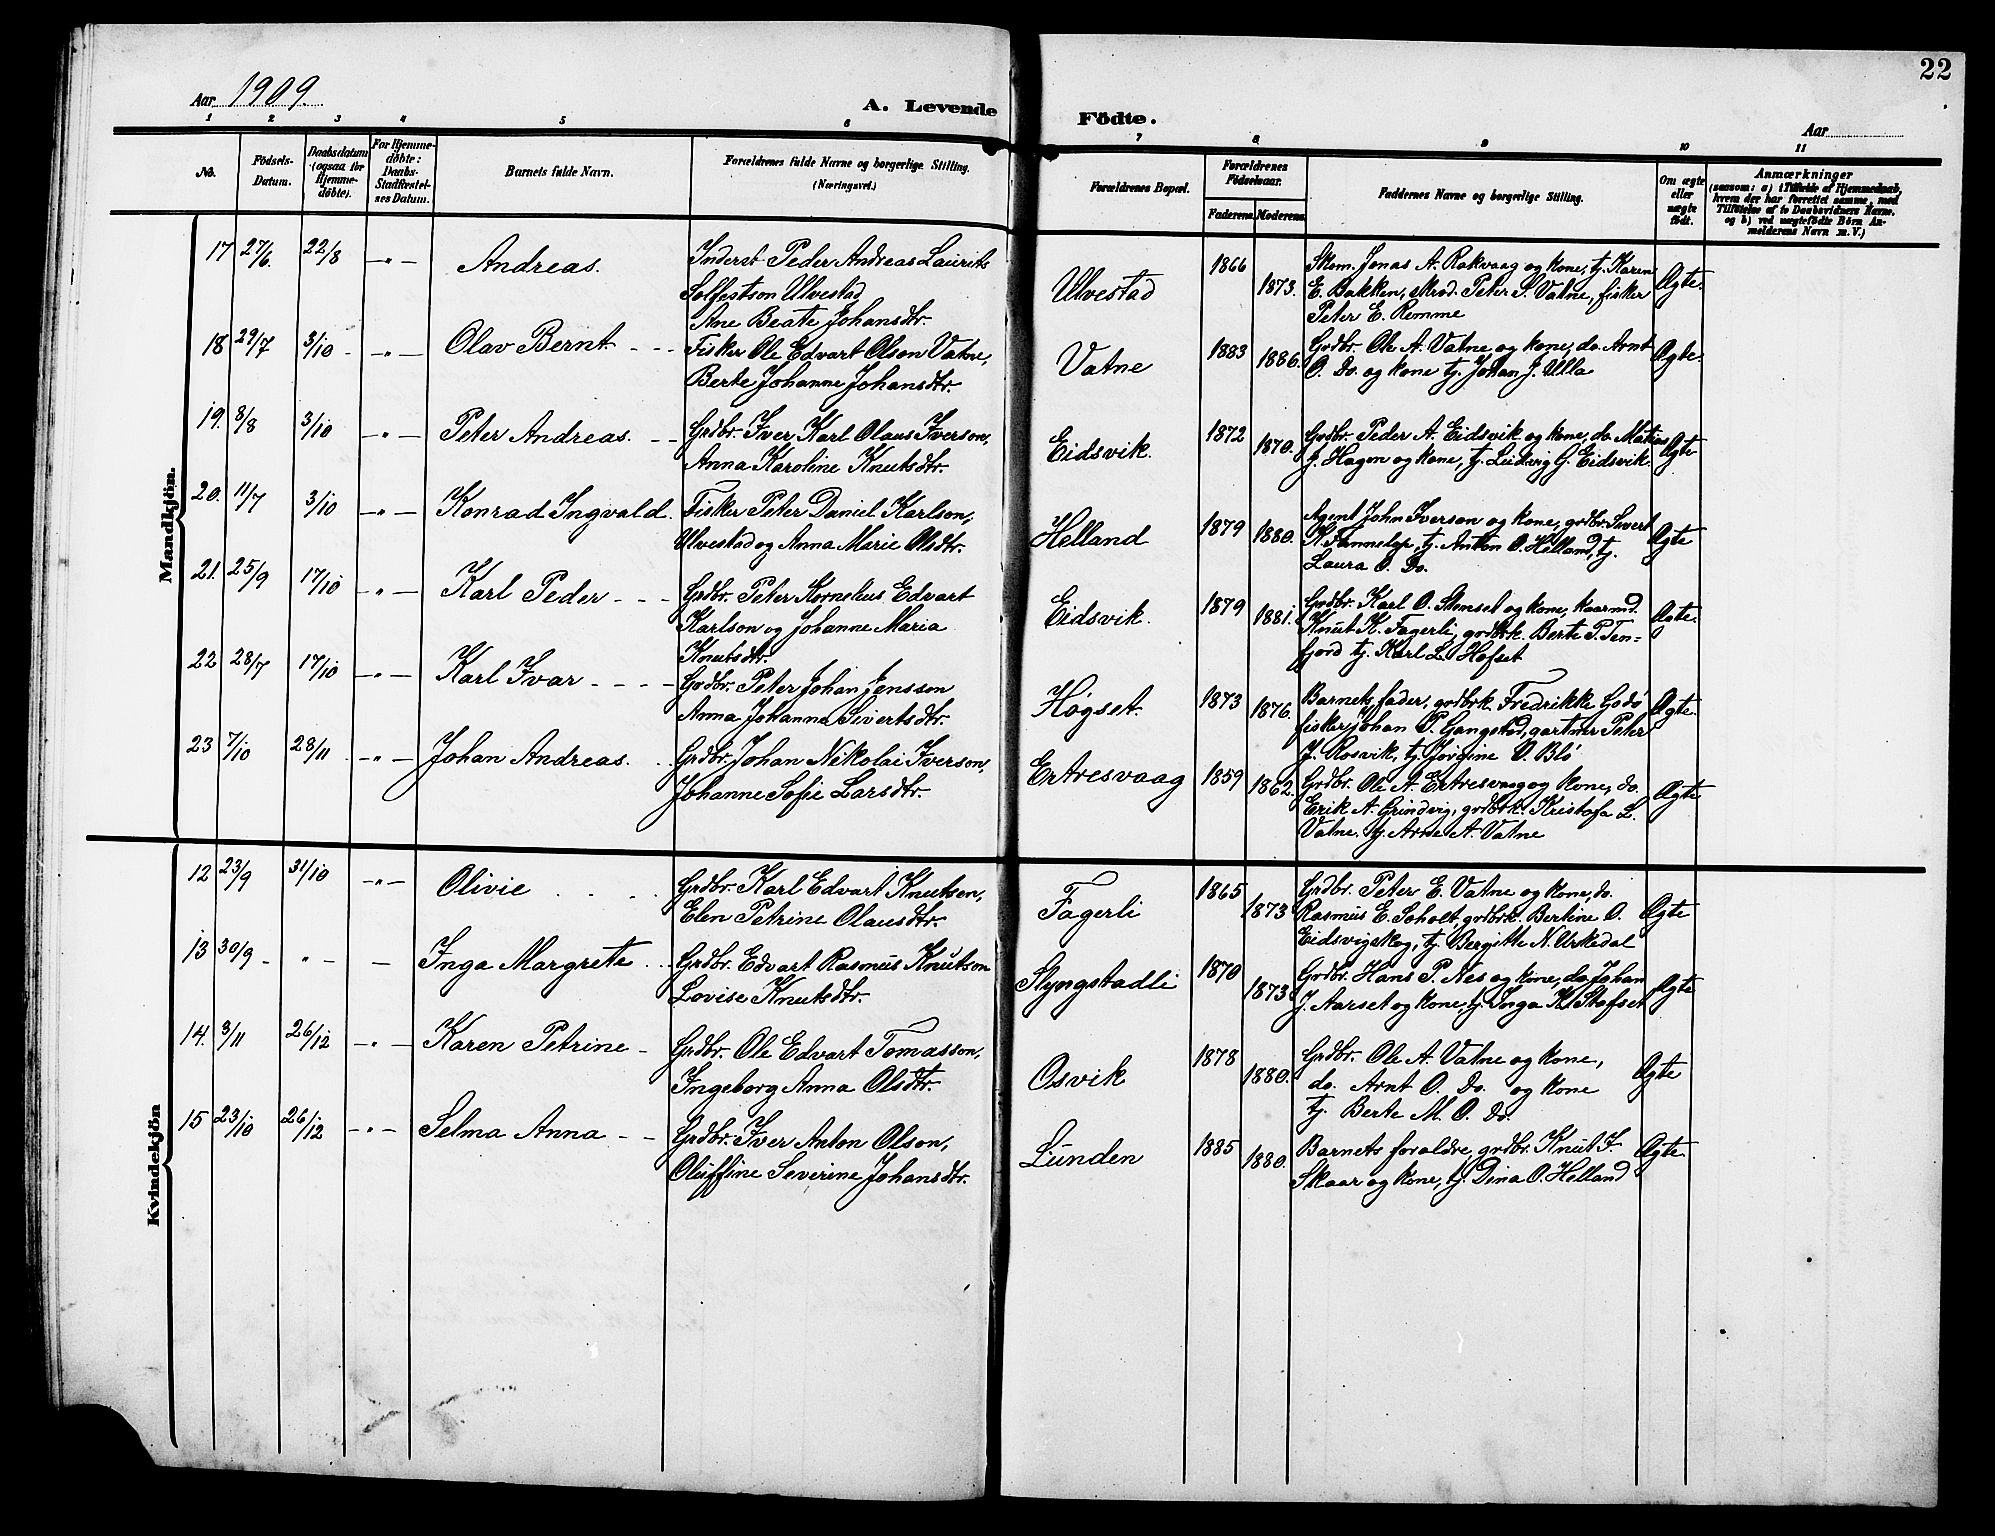 22
Aar 1909.
A. Levende Födte.
Aar
1 2 3 4 5 6 7 8 9 10 11
No.
Födsels-Datum.
Daabsdatum (ogsaa for Hjemme-døbte).
For Hjemme-døbte: Daabs-Stadfæstel-ses Datum.
Barnets fulde Navn.
Forældrenes fulde Navne og borgerlige Stilling. (Næringsvei.)
Forældrenes Bopæl.
Forældrenes Födselsaar.
Faderens. Moderens.
Faddernes Navne og borgerlige Stilling.
Om ægte eller uægte født.
Anmærkninger
(saasom: a) i Tilfælde af Hjemmedaab, hvem der har forrettet samme, med Tilföielse af to Daabsvidners Navne, og b) ved uægtefödte Börn Anmelderens Navn m. V.)
Mandkjön.
17 27/6. 22/8 — " — Andreas. Inderst Peder Andreas Laurits
Solfestson Ulvestad
Ane Beate Johansdtr.
Ulvestad 1866 1873. Skom. Jonas A. Rakvaag og kone, tj. Karen
E. Bakken, Peter S. Vatne, fisker
Peter E. Remme
Ægte.
18 29/7 3/10 — " — Olav Bernt — — Fisker Ole Edvart Olson Vatne,
Berte Johanne Johansdtr.
Vatne 1883 1886. Grdbr. Ole A. Vatne og kone, do. Arnt
O. Do. og kone tj. Johan J. Ulla
Ægte.
19. 8/8 3/10 — " — Peter Andreas. — — Grdbr. Iver Karl Olaus Iverson,
Anna Karoline Knutsdtr.
Eidsvik. 1872 1870. Grdbr. Peder A. Eidsvik og kone, do. Matias
J. Hagen og kone, tj. Ludvig G. Eidsvik
Ægte
20. 11/7 3/10 — " — Konrad Ingvald. Fisker Peter Daniel Karlson,
Ulvestad og Anna Marie Olsdtr.
Helland 1879 1880. Agent John Iverson og kone, grdbr. Sivert
K. tj. Anton O. Helland, tj.
Laura O. Do.
Ægte
21. 25/9 17/10 — " — Karl Peder — — — Grdbr. Peter Kornelius Edvart
Karlson og Johanne Maria
Knutsdtr.
Eidsvik. 1879 1881. Grdbr. Karl O. Stenset og kone, kaarmd.
Knut K. Fagerli, grdbrk. Berte P. Ten-
fjord tj. Karl L. Hofset
Ægte.
22 28/7 17/10 — " — Karl Ivar — — — — Grdbr. Peter Johan Jensson
Anna Johanna Sivertsdtr.
Høgset. 1873 1876. Barnets fader, grdbrk. Fredrikke Godø
fisker Johan P. Gangstad, gartner Peter
J. Rosvik, tj. Jorgine O. Blø
Ægte.
23 7/10 28/11 — " — Johan Andreas. . . Grdbr. Johan Nikolai Iverson,
Johanne Sofie Larsdtr.
Ertresvaag 1859 1862. Grdbr. Ole A. Ertresvaag og kone, do.
Erik A. Grindvig, grdbrk. Kristofa L.
Vatne. tj. Arne A. Vatne
Ægte
Kvindekjön
12 23/9 31/10 — " — Olivie . . . . Grdbr. Karl Edvart Knutson,
Elen Petrine Olausdtr.
Fagerli 1865 1873 Grdbr. Peter E. Vatne og kone, do.
Rasmus E. Soholt, grdbrk. Bertine O.
Eidsvigskog, tj. Bergitte N. Urkedal
Ægte
13 30/9 — " — — Inga Margrete . . Grdbr. Edvart Rasmus Knutson
Lovise Knutsdtr.
Slyngstadli 1870 1873 Grdbr. Hans P. Nes og kone, do. Johan
J. Aarset og kone, tj. Inga K. Stafset
Ægte
14. 3/11 26/12 — " — Karen Petrine — Grdbr. Ole Edvart Tomasson,
Ingeborg Anna Olsdtr.
Osvik 1878 1880. Grdbr. Ole A. Vatne og kone,
do. Arnt O. Do. og kone
tj. Berte M. O. Do.
Ægte
15 23/10 26/12 — " — Selma Anna — — Grdbr. Iver Anton Olson,
Oluffine Severine Johansdtr.
Lunden 1885 1880. Barnets foraldre, grdbr. Knut I.
Skaar og kone, tj. Dina O. Helland
Ægte.